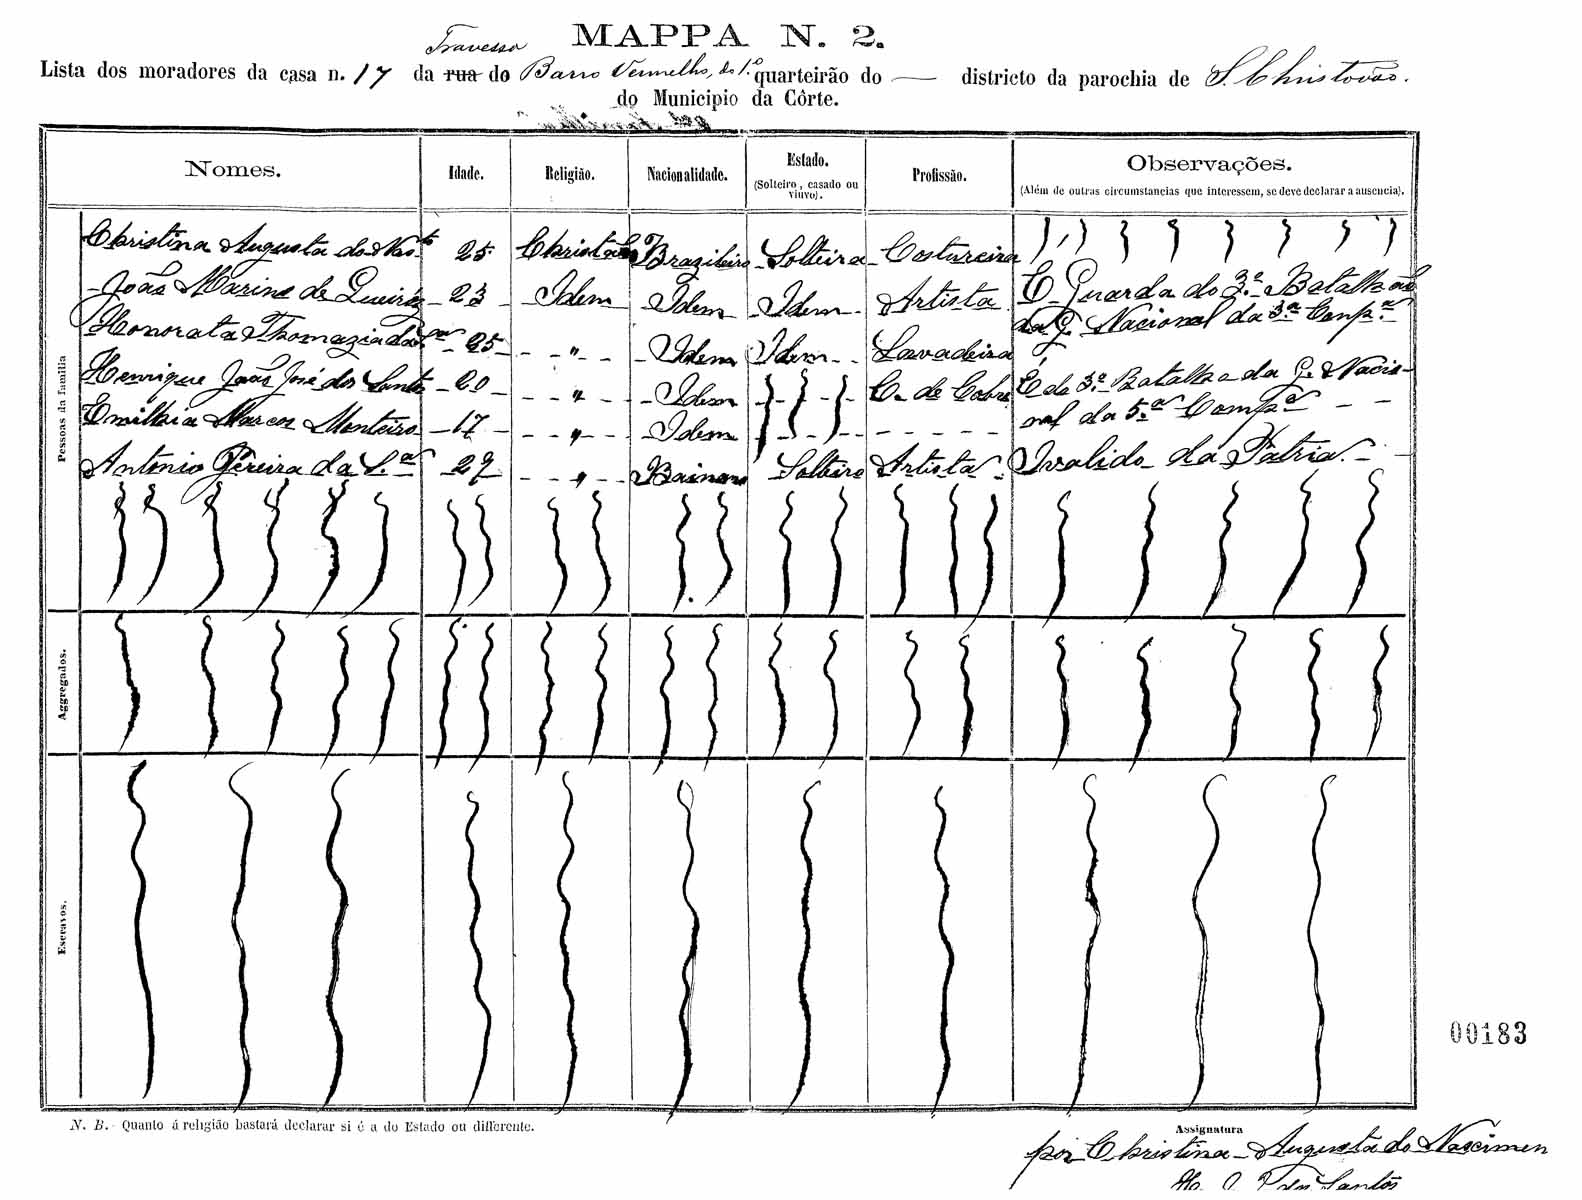 MAPPA N. 2.
Travessa
Lista dos moradores da casa n. 17 da rua do Barro Vermelho, do 1.º quarteirão do — districto da parochia de S. Christovão.
do Municipio da Côrte.
Nomes. Idade. Religião. Nacionalidade. Estado. Profissão. Observações.
(Solteiro, casado ou viuvo). (Além de outras circumstancias que interessem, se deve declarar a ausencia).
Pessoas da familia
Christina Augusta do Nas.to 25 Christã Brazileiro Solteira Costureira
João Marino de Queiróz 23 Idem Idem Idem Artista É Guarda do 3.º Batalhão
da G. Nacional da 3.ª Comp.ª
Honorata Thomazia da S.ª 25 " Idem Idem Lavadeira
Henrique João José dos Santos 20 " Idem C. de Cobre É do 3.º Batalhão da G. Nacio-
nal da 5.ª Comp.ª
Emilhia Marcos Monteiro 17 " Idem
Antonio Pereira da S.ª 29 " Bainano Solteiro Artista Ivalido da Pátria.
Aggregados.
Escravos.
00183
N. B. Quanto á religião bastará declarar si é a do Estado ou differente.
Assignatura
por Christina Augusta do Nascimen
H. J. J. dos Santos